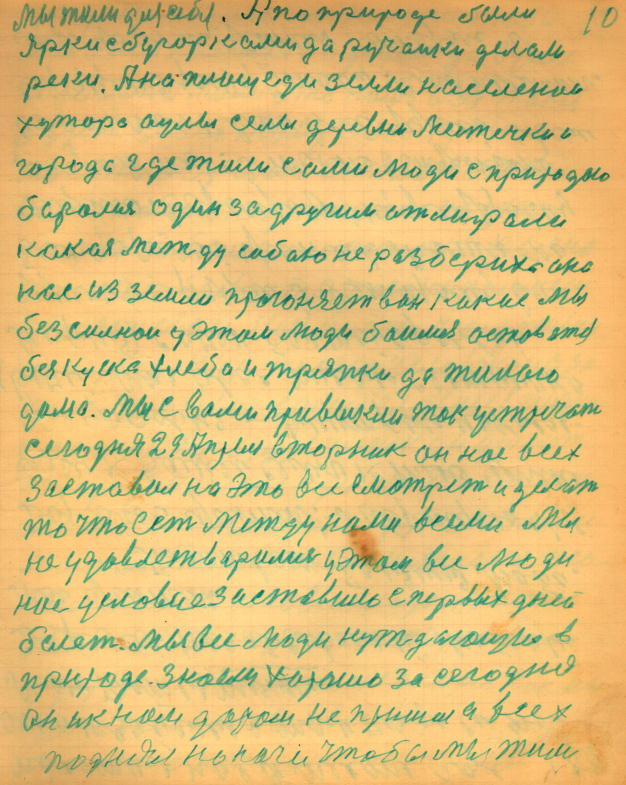 мы жили для себя. А по природе были 10
яркие бугорками да ручайки делали
реки. А на площеди земли населении
хутора аулы селы деревни местечки и
города где жили сами люди с природою
баролися один за другим отмирали
какая между собою не разбериха она
нас из земли прогоняет вон какие мы
бессилнои у этом люди боимся остов
без куска хлеба и тряпки да жилого
дома. Мы с вами привыкли так устречат
сегодня 29 Апрел вторник он нас всех
заставол на это все смотрет и делат
то что ест между нами всеми Мы
не удовлетварилися у этом все люди
нас условие заставило с первых дней
болет. Мы все люди нуждающия в
природе. Знаем хорошо за сегодня
он к нам даром не пришол а всех
поднял на ноги чтобы мы жили